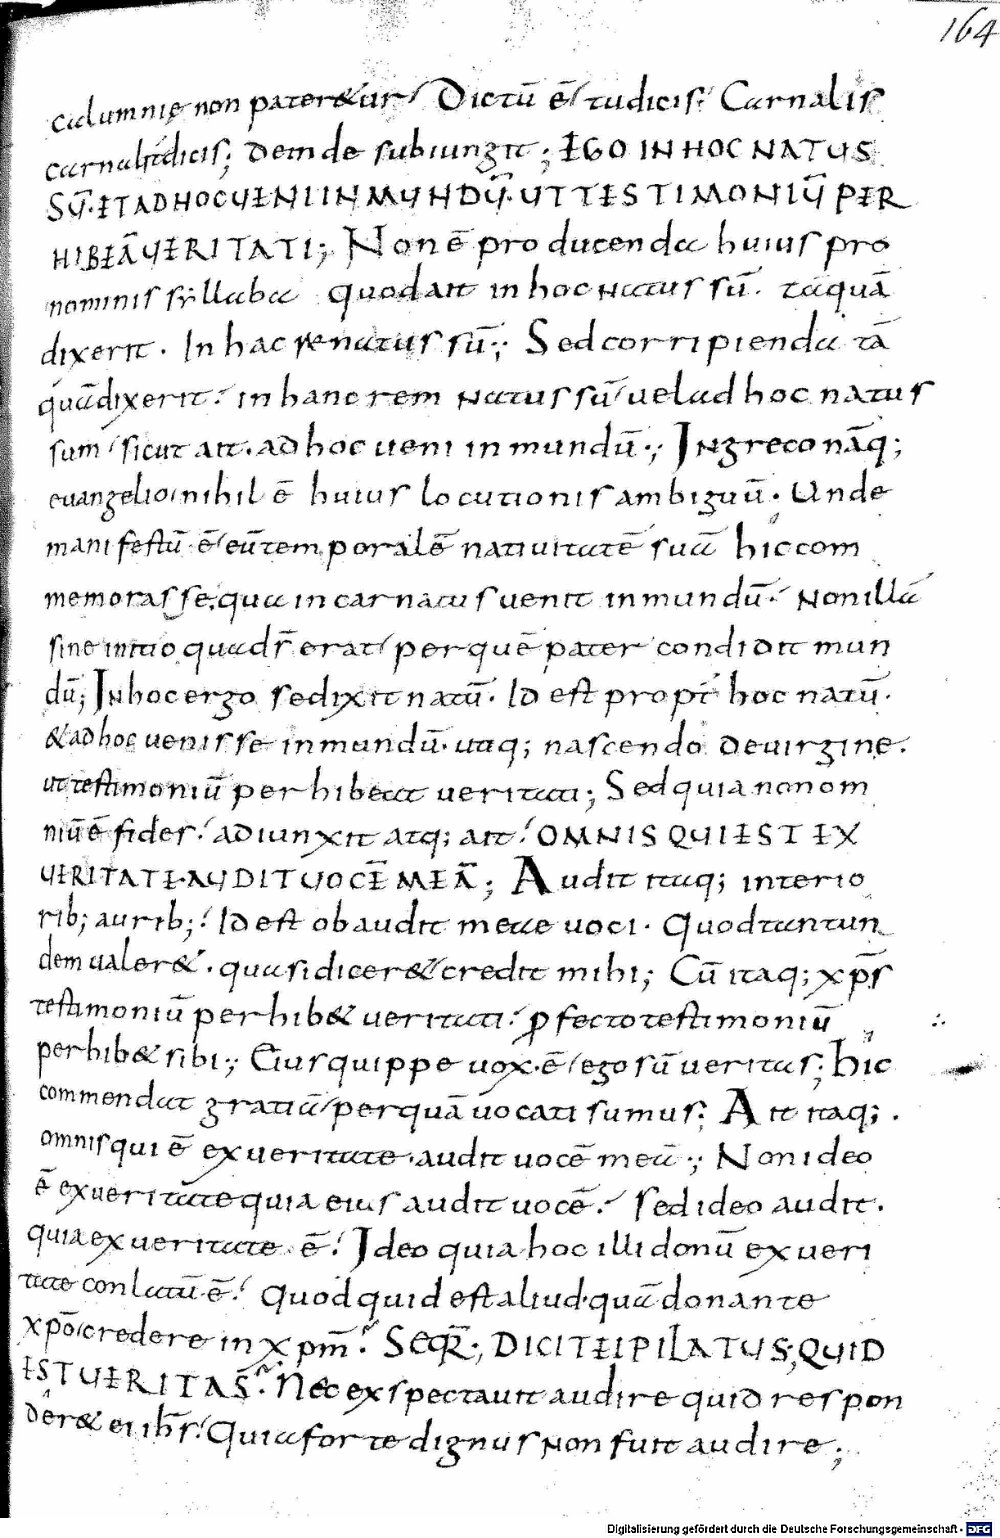 164
calumnię non pater&ur. Dictū ē, iudicis. Carnalis
carnalit dicis; Deinde subiungit; EGO IN HOC NATUS
SŪ. ET AD HOC UENI IN MUNDŪ. UT TESTIMONIŪ PER
HIBEĀ UERITATI; Non ē producenda huius pro
nominis syllaba quod ait in hoc natus sū. tāquā
dixerit. In hac re natus sū; Sed corripienda tā
quā dixerit. in hanc rem natus sū, uel ad hoc natus
sum, sicut ait. ad hoc ueni in mundū; In greco nāq;
euangelio, nihil ē huius locutionis ambiguū. Unde
manifestū ē, eū temporalē natiuitatē suā hic com
memorasse. qua incarnatus uenit in mundū. Non illā
sine initio qua dr̄ erat, per quē pater condidit mun
dū; In hoc ergo se dixit natū. Id est propt̄ hoc natū.
& ad hoc uenisse in mundū. utiq; nascendo de uirgine.
ut testimoniū perhibeat ueritati; Sed quia non om
niū ē fides. adiunxit atq; ait. OMNIS QUI EST EX
UERITATE. AUDIT UOCĒ MEĀ; Audit itaq; interio
rib; aurib; Id est obaudit meae uoci. Quod tantun
dem ualer&. quasi dicer&, credit mihi; Cū itaq; xp̄s
testimoniū perhib& ueritati. ꝓfecto testimoniū
perhib& sibi; Eius quippe uox ē, ego sū ueritas; hic
commendat gratiā, per quā uocati sumus; Ait itaq;.
omnis qui ē ex ueritate. audit uocē meā; Non ideo
ē ex ueritate quia eius audit uocē. sed ideo audit.
quia ex ueritate ē. Ideo quia hoc illi donū ex ueri
tate conlatū ē. Quod quid est aliud. quā donante
xp̄o, credere in xp̄m. SEQR̄; DICIT EI PILATUS; QUID
EST UERITAS. Nec expectauit audire quid respon
der& ei ih̄s. Quia forte dignus non fuit audire;
Digitalisierung gefördert durch die Deutsche Forschungsgemeinschaft - DFG